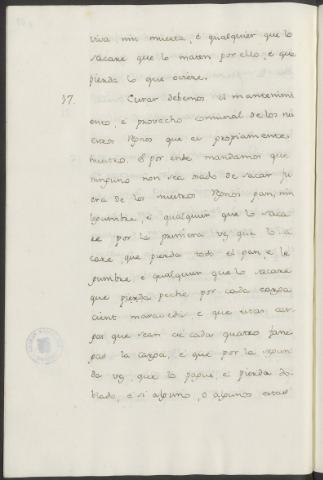 viva nin muerta, e qualquier que lo
sacare que lo maten por ello, e que
pierda lo que oviere.
37. Curar debemos el mantenimi
ento, e provecho comunal de los nu
estros Regnos que es propiamente
nuestro. E por ende mandamos que
ninguno non sea osado de sacar fu
era de los nuestros Regnos pan, nin
legumbre, e qualquier que lo saca
re por la primera vez que lo sa
care, que pierda todo el pan, e le
gumbre, e qualquier que lo sacare
que pierda peche por cada carga
cient maravedis e que estas car
gas que sean de cada quatro fane
gas la carga, e que por la segun
da vez, que lo pague, e pierda do
blado, e si alguno, o algunos estas